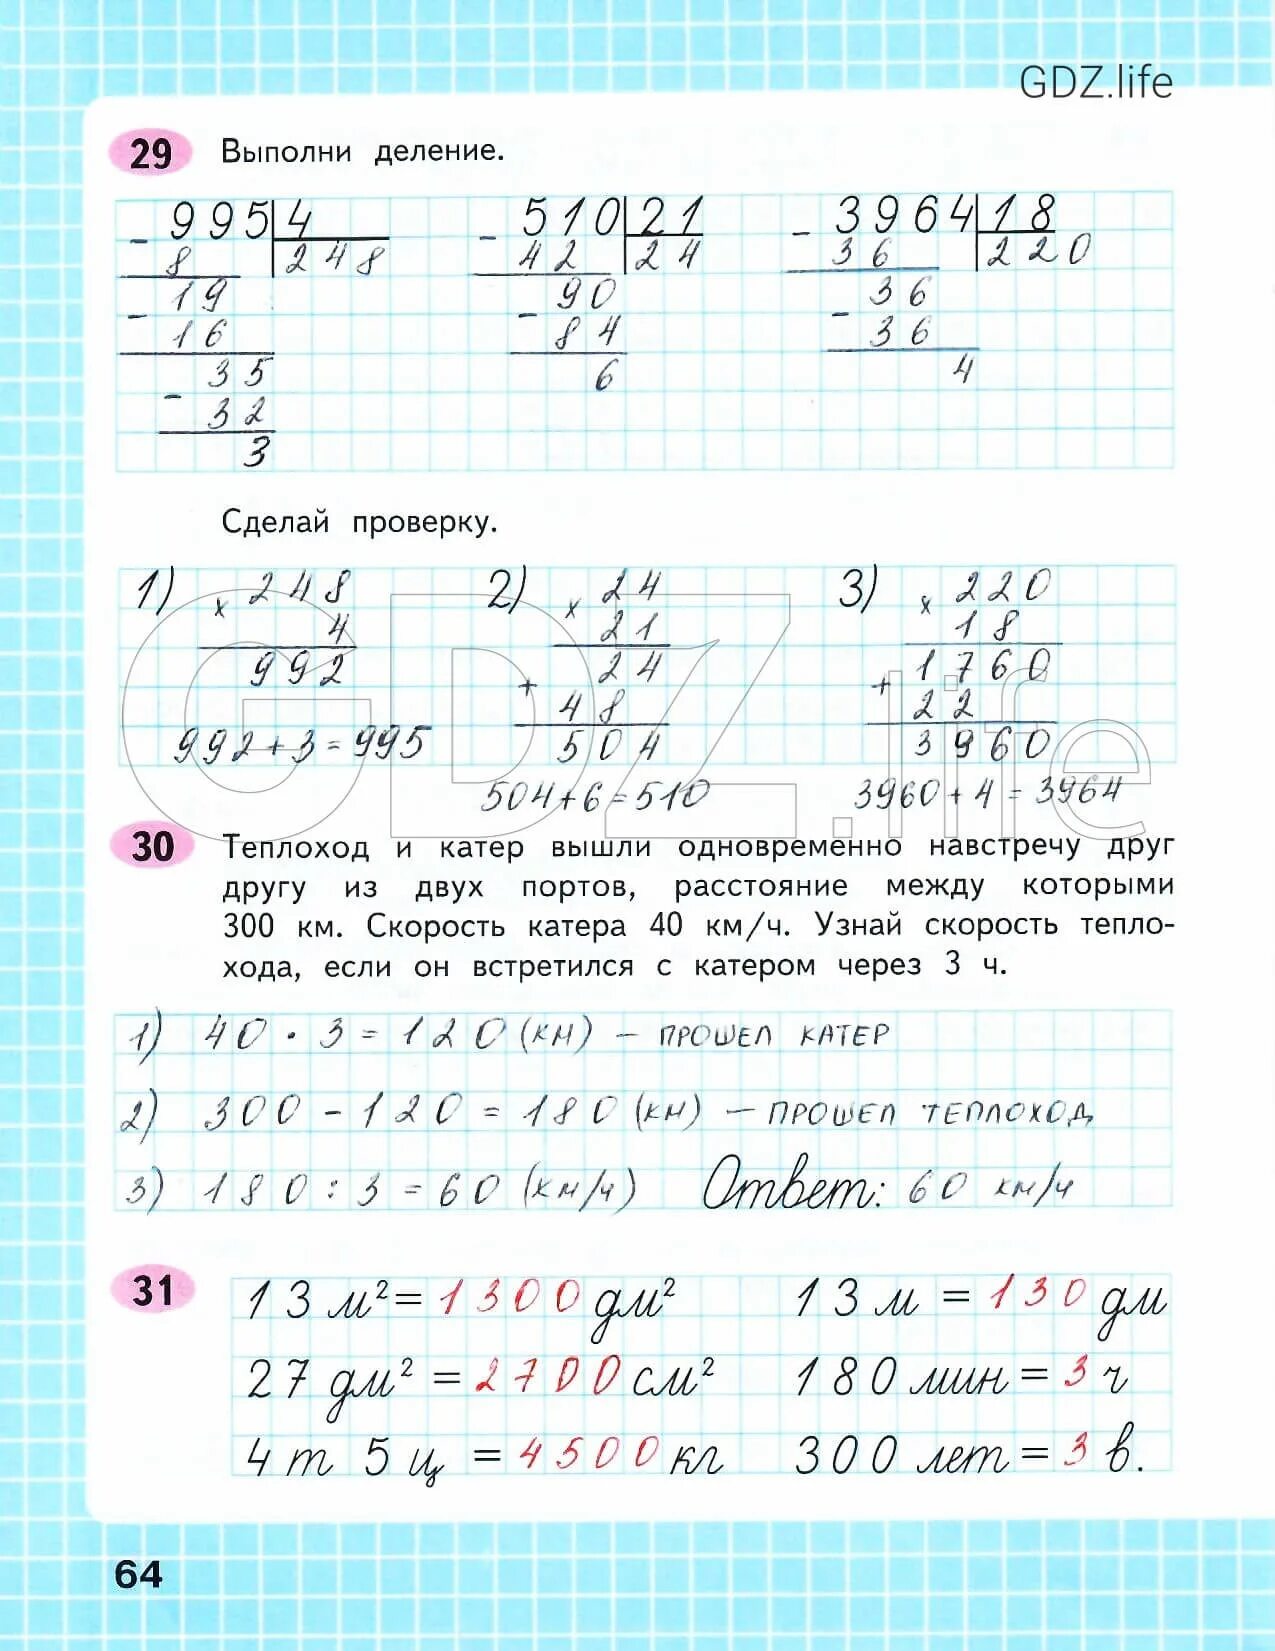 GDZ.life
29 Выполни деление.
995 4
8 248
19
16
35
32
3
510 21
42 24
90
84
6
3964 18
36 220
36
36
4
Сделай проверку.
1) 248
× 4
992
992+3=995
2) 24
× 21
24
+ 48
504
504+6=510
3) 220
× 18
1760
+ 22
3960
3960+4=3964
GDZ.life
30 Теплоход и катер вышли одновременно навстречу друг
другу из двух портов, расстояние между которыми
300 км. Скорость катера 40 км/ч. Узнай скорость тепло-
хода, если он встретился с катером через 3 ч.
1) 40 · 3 = 120 (км) – прошел катер
2) 300 – 120 = 180 (км) – прошел теплоход
3) 180 : 3 = 60 (км/ч) Ответ: 60 км/ч
31 13 м² = 1300 дм² 13 м = 130 дм
27 дм² = 2700 см² 180 мин = 3 ч
4 т 5 ц = 4500 кг 300 лет = 3 в.
64